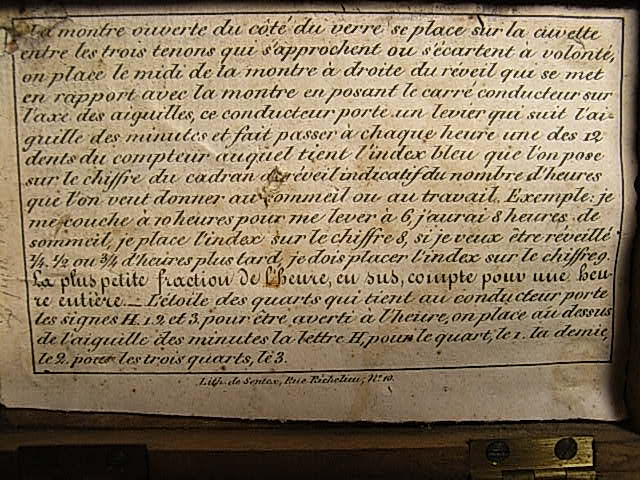 La montre ouverte du côté du verre se place sur la cuvette
entre les trois tenons qui s'approchent ou s'écartent à volonté,
on place le midi de la montre à droite du réveil qui se met
en rapport avec la montre en posant le carré conducteur sur
l'axe des aiguilles, ce conducteur porte un levier qui suit l'ai-
guille des minutes et fait passer à chaque heure une des 12
dents du compteur auquel tient l'index bleu que l'on pose
sur le chiffre du cadran de réveil indicatif du nombre d'heures
que l'on veut donner au sommeil ou au travail. Exemple: je
me couche à 10 heures pour me lever à 6 j'aurai 8 heures de
sommeil, je place l'index sur le chiffre 8, si je veux être réveillé
¼. ½ ou ¾ d'heures plus tard, je dois placer l'index sur le chiffre 9.
La plus petite fraction de l'heure, en sus, compte pour une heu-
re entière. _ L'étoile des quarts qui tient au conducteur porte
les signes H. 1. 2 et 3. pour être averti à l'heure, on place au dessus
de l'aiguille des minutes la lettre H, pour le quart, le 1. la demie,
le 2. pour les trois quarts, le 3.
Lith. de Sentex, Rue Richelieu, N° 10.